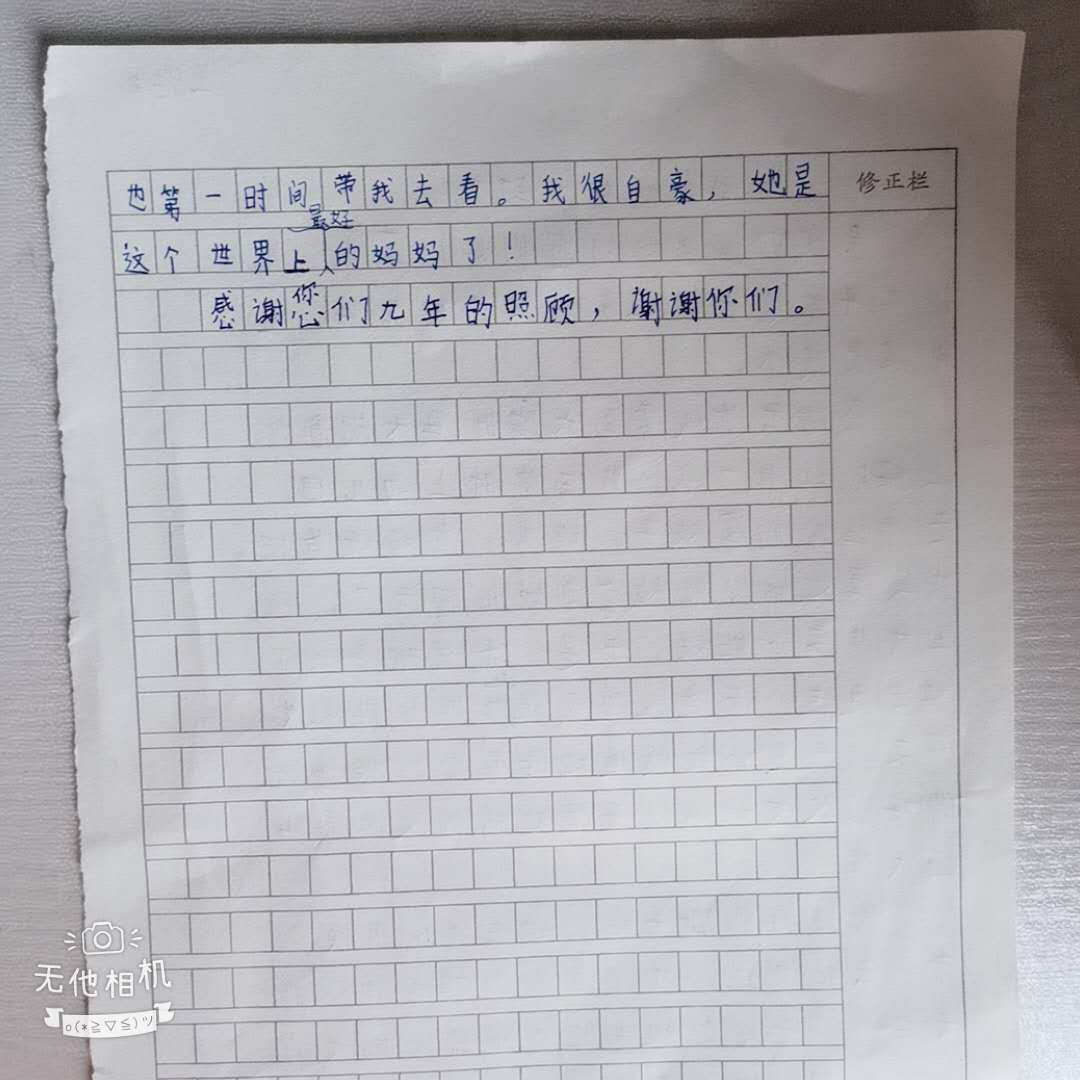 也第一时间带我去看。我很自豪，她是
修正栏
这个世界上最好的妈妈了！
感谢您们九年的照顾，谢谢你们。
无他相机
o(*≧▽≦)ツ